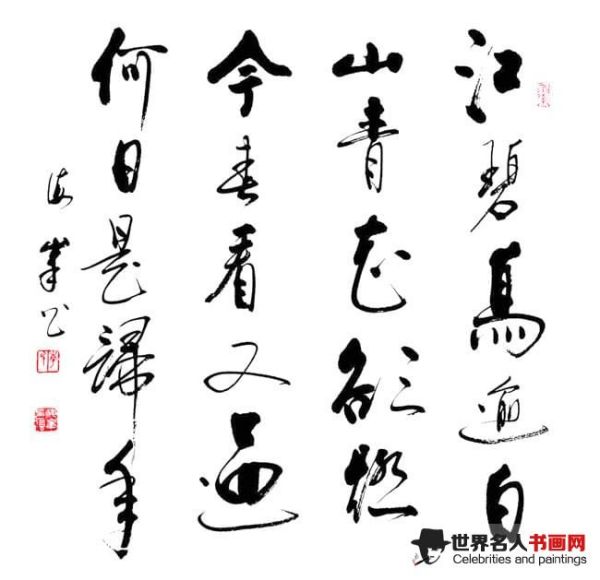 江碧鳥逾白
山青花欲燃
今春看又過
何日是歸年
海峯书
世界名人书画网
Celebrities and paintings